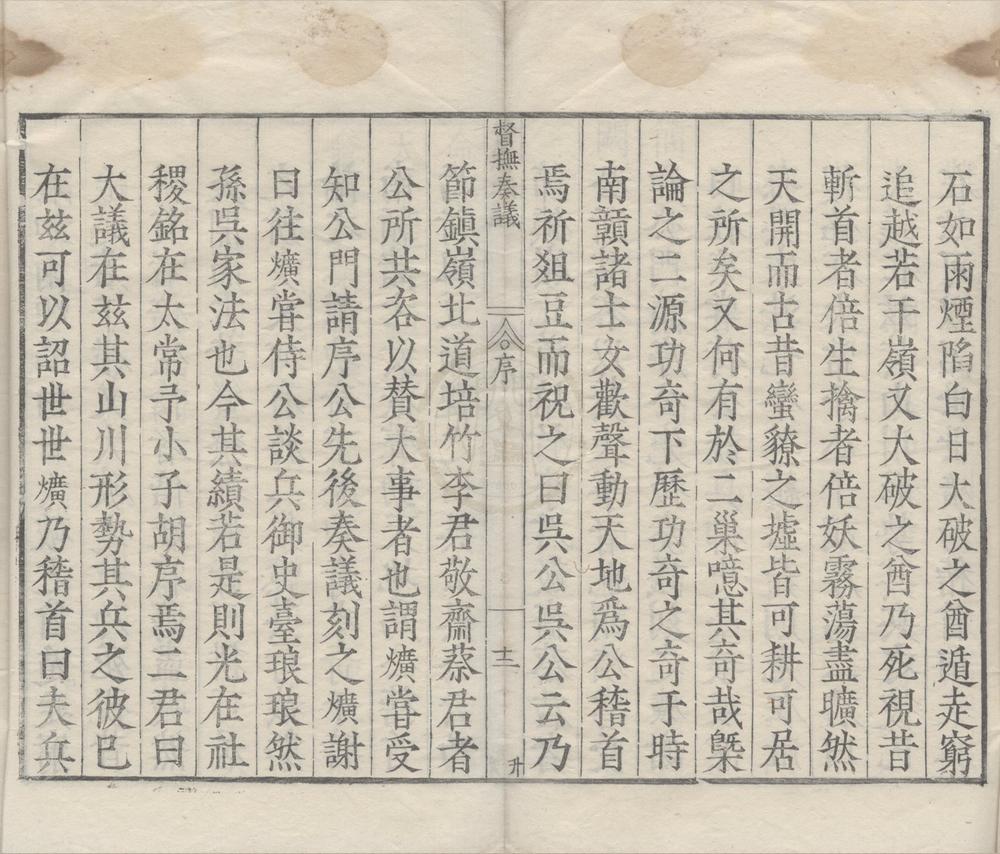 石如雨煙陷白日大破之酋遁走窮
追越若干嶺又大破之酋乃死視昔
斬首者倍生擒者倍妖霧蕩盡曠然
天開而古昔蠻獠之墟皆可耕可居
之所矣又何有於二巢噫其奇哉槩
論之二源功奇下歷功奇之奇于時
南贛諸士女歡聲動天地爲公稽首
焉祈爼豆而祝之曰吳公吳公云乃
督撫奏議
序
十二
升
節鎮嶺北道培竹李君敬齋蔡君者
公所共咨以賛大事者也謂爌嘗受
知公門請序公先後奏議刻之爌謝
曰往爌嘗侍公談兵御史臺琅琅然
孫吳家法也今其績若是則光在社
稷銘在太常予小子胡序焉二君曰
大議在兹其山川形勢其兵之彼巳
在兹可以詔世世爌乃稽首曰夫兵